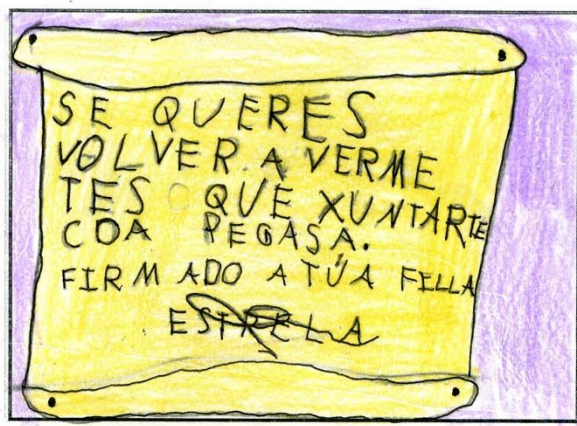 SE QUERES
VOLVER A VERME
TES QUE XUNTARTE
COA PEGASA.
FIRMADO A TÚA FILLA
ESTRELA